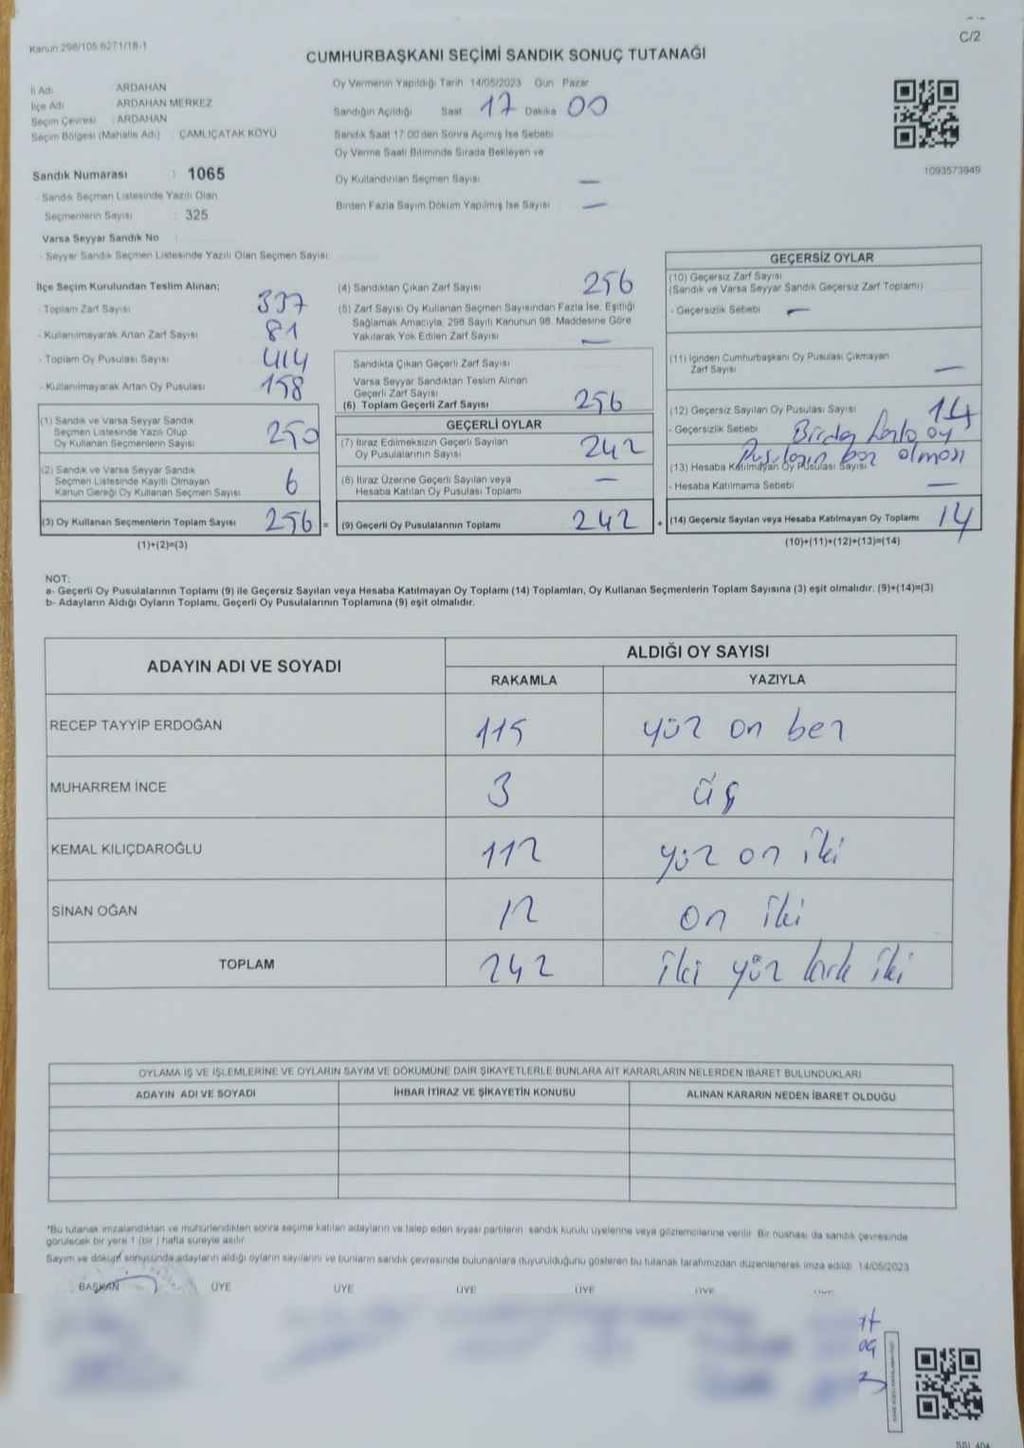 C/2
Kanun 298/105 6271/18-1
CUMHURBAŞKANI SEÇİMİ SANDIK SONUÇ TUTANAĞI
İl Adı ARDAHAN
İlçe Adı ARDAHAN MERKEZ
Seçim Çevresi : ARDAHAN
Seçim Bölgesi (Mahalle Adı) : ÇAMLIÇATAK KÖYÜ
Oy Vermenin Yapıldığı Tarih 14/05/2023 Gün Pazar
Sandığın Açıldığı Saat 17 Dakika 00
Sandık Saat 17:00'den Sonra Açılmış İse Sebebi
Oy Verme Saati Bitiminde Sırada Bekleyen ve
Oy Kullandırılan Seçmen Sayısı —
Birden Fazla Sayım Döküm Yapılmış İse Sayısı —
1093573949
Sandık Numarası : 1065
- Sandık Seçmen Listesinde Yazılı Olan
Seçmenlerin Sayısı : 325
Varsa Seyyar Sandık No
- Seyyar Sandık Seçmen Listesinde Yazılı Olan Seçmen Sayısı
İlçe Seçim Kurulundan Teslim Alınan;
- Toplam Zarf Sayısı 337
- Kullanılmayarak Artan Zarf Sayısı 81
- Toplam Oy Pusulası Sayısı 414
- Kullanılmayarak Artan Oy Pusulası 158
(1) Sandık ve Varsa Seyyar Sandık
Seçmen Listesinde Yazılı Olup
Oy Kullanan Seçmenlerin Sayısı 250
(2) Sandık ve Varsa Seyyar Sandık
Seçmen Listesinde Kayıtlı Olmayan
Kanun Gereği Oy Kullanan Seçmen Sayısı 6
(3) Oy Kullanan Seçmenlerin Toplam Sayısı 256 =
(1)+(2)=(3)
(4) Sandıktan Çıkan Zarf Sayısı 256
(5) Zarf Sayısı Oy Kullanan Seçmen Sayısından Fazla İse, Eşitliği
Sağlamak Amacıyla, 298 Sayılı Kanunun 98. Maddesine Göre
Yakılarak Yok Edilen Zarf Sayısı —
Sandıkta Çıkan Geçerli Zarf Sayısı
Varsa Seyyar Sandıktan Teslim Alınan
Geçerli Zarf Sayısı
(6) Toplam Geçerli Zarf Sayısı 256
GEÇERLİ OYLAR
(7) İtiraz Edilmeksizin Geçerli Sayılan
Oy Pusulalarının Sayısı 242
(8) İtiraz Üzerine Geçerli Sayılan veya
Hesaba Katılan Oy Pusulası Toplamı —
(9) Geçerli Oy Pusulalarının Toplamı 242 +
GEÇERSİZ OYLAR
(10) Geçersiz Zarf Sayısı
(Sandık ve Varsa Seyyar Sandık Geçersiz Zarf Toplamı)
- Geçersizlik Sebebi —
(11) İçinden Cumhurbaşkanı Oy Pusulası Çıkmayan
Zarf Sayısı —
(12) Geçersiz Sayılan Oy Pusulası Sayısı 14
- Geçersizlik Sebebi Birden fazla oy
Pusulanın boş olması
(13) Hesaba Katılmayan Oy Pusulası Sayısı
- Hesaba Katılmama Sebebi —
(14) Geçersiz Sayılan veya Hesaba Katılmayan Oy Toplamı 14
(10)+(11)+(12)+(13)=(14)
NOT:
a- Geçerli Oy Pusulalarının Toplamı (9) ile Geçersiz Sayılan veya Hesaba Katılmayan Oy Toplamı (14) Toplamları, Oy Kullanan Seçmenlerin Toplam Sayısına (3) eşit olmalıdır. (9)+(14)=(3)
b- Adayların Aldığı Oyların Toplamı, Geçerli Oy Pusulalarının Toplamına (9) eşit olmalıdır.
ADAYIN ADI VE SOYADI ALDIĞI OY SAYISI
RAKAMLA YAZIYLA
RECEP TAYYİP ERDOĞAN 115 yüz on beş
MUHARREM İNCE 3 üç
KEMAL KILIÇDAROĞLU 112 yüz on iki
SİNAN OĞAN 12 on iki
TOPLAM 242 iki yüz kırk iki
OYLAMA İŞ VE İŞLEMLERİNE VE OYLARIN SAYIM VE DÖKÜMÜNE DAİR ŞİKAYETLERLE BUNLARA AİT KARARLARIN NELERDEN İBARET BULUNDUKLARI
ADAYIN ADI VE SOYADI İHBAR İTİRAZ VE ŞİKAYETİN KONUSU ALINAN KARARIN NEDEN İBARET OLDUĞU
*Bu tutanak imzalandıktan ve mühürlendikten sonra seçime katılan adayların ve talep eden siyasi partilerin sandık kurulu üyelerine veya gözlemcilerine verilir. Bir nüshası da sandık çevresinde
görülecek bir yere 1 (bir ) hafta süreyle asılır.
Sayım ve döküm sonucunda adayların aldığı oyların sayılarını ve bunların sandık çevresinde bulunanlara duyurulduğunu gösteren bu tutanak tarafımızdan düzenlenerek imza edildi. 14/05/2023
BAŞKAN ÜYE ÜYE ÜYE ÜYE ÜYE